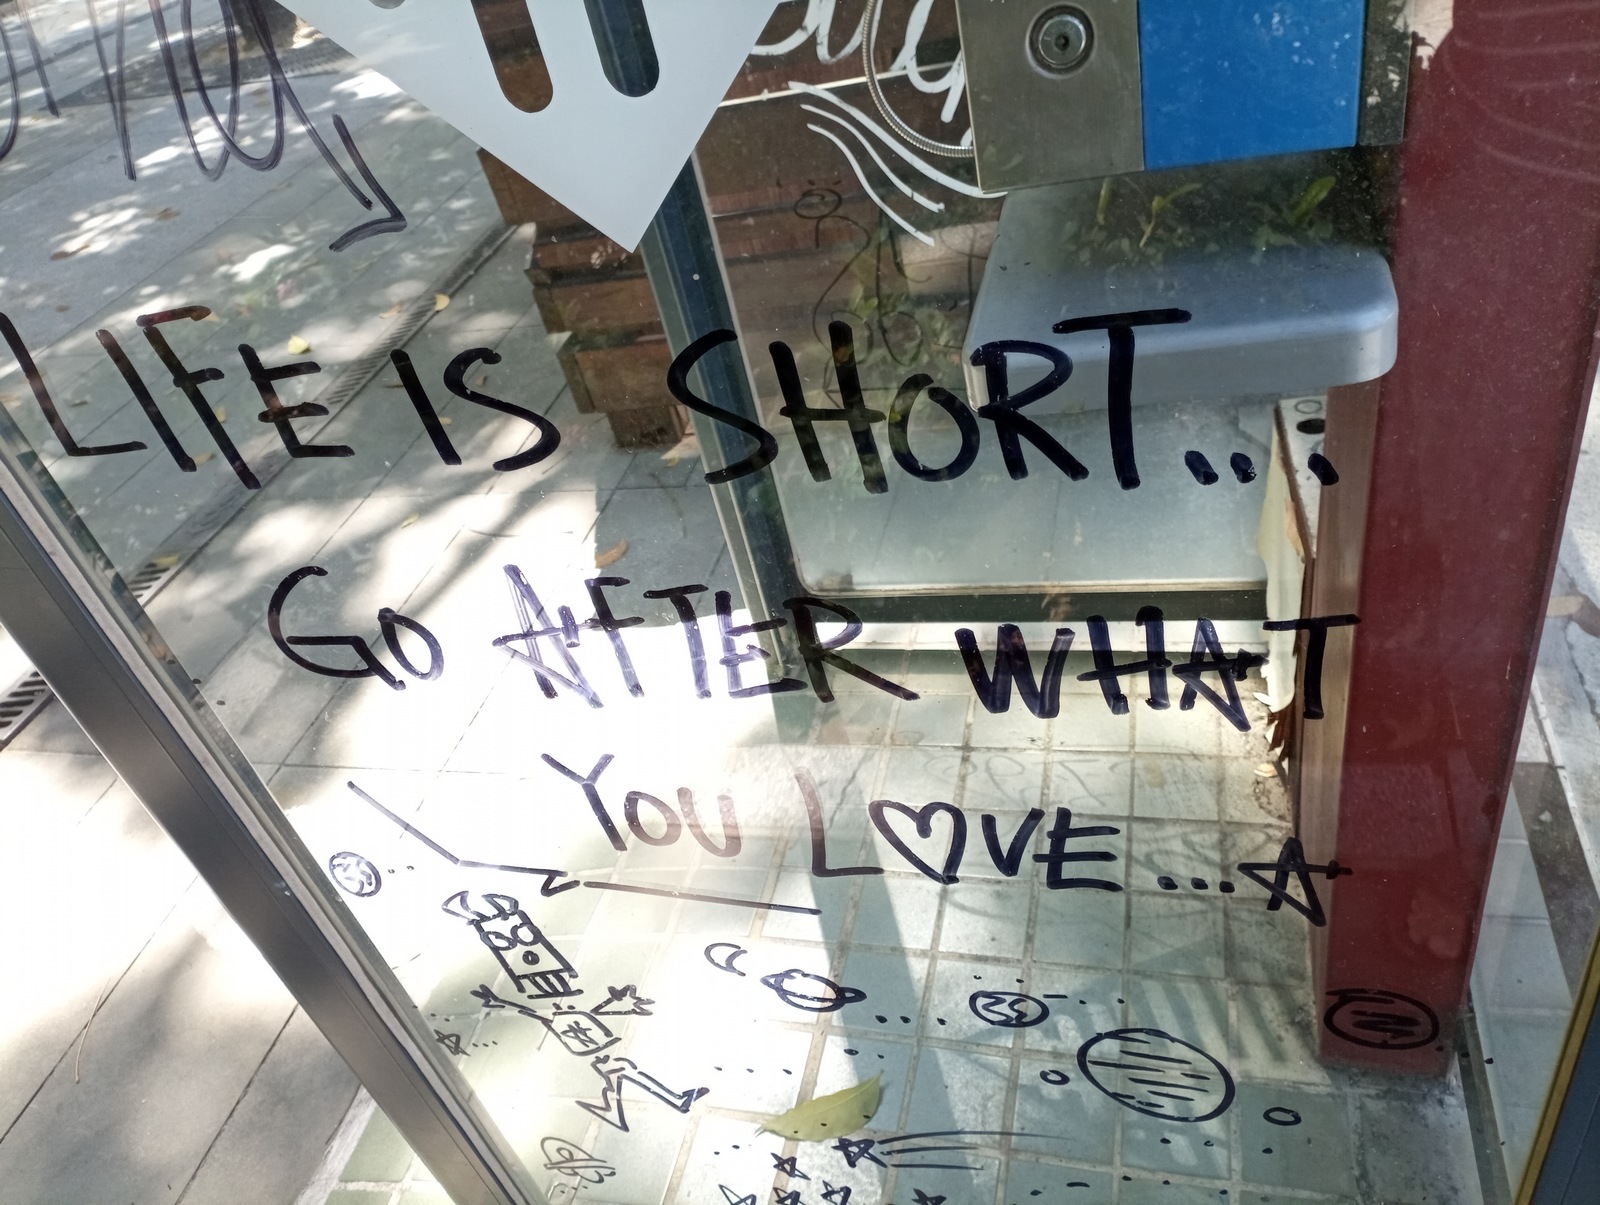 LIFE IS SHORT...
GO AFTER WHAT
YOU LOVE...